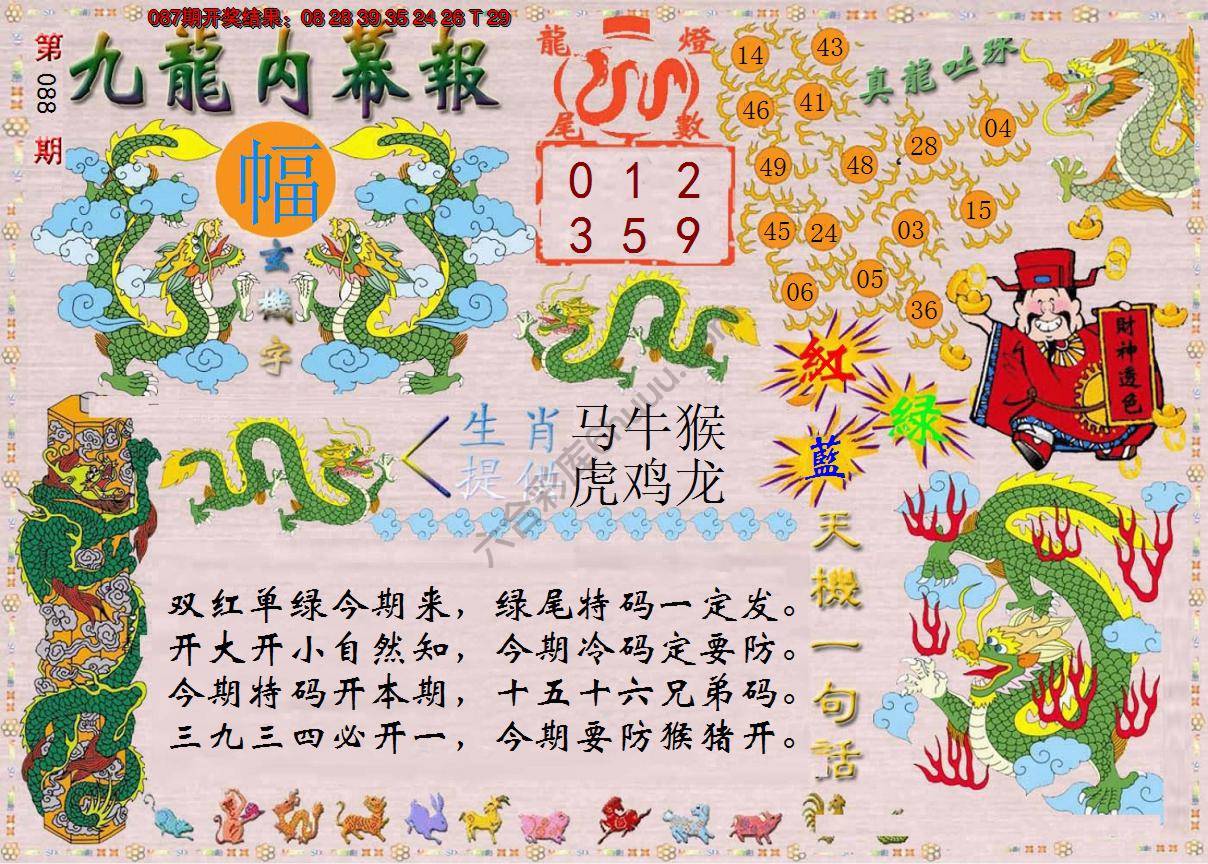 087期开奖结果：08 28 39 35 24 26 T 29
第088期
九龍内幕報
幅
玄機字
龍燈
尾數
0 1 2
3 5 9
真龍吐珠
14
43
46
41
49
48
28
04
45
24
03
15
06
05
36
財神透色
紅
绿
藍
生肖提供
马牛猴
虎鸡龙
双红单绿今期来，绿尾特码一定发。
开大开小自然知，今期冷码定要防。
今期特码开本期，十五十六兄弟码。
三九三四必开一，今期要防猴猪开。
天機一句话